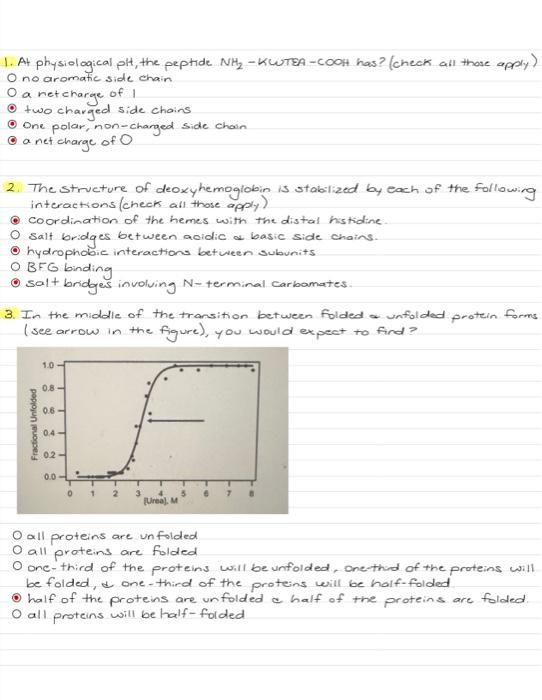 1. At physiological pH, the peptide NH2 - KWTEA - COOH has? (check all those apply)
no aromatic side chain
a net charge of 1
two charged side chains
One polar, non-charged side chain
a net charge of 0
2. The structure of deoxyhemoglobin is stabilized by each of the following
interactions (check all those apply)
coordination of the hemes with the distal histidine.
salt bridges between acidic & basic side chains.
hydrophobic interactions between subunits
BFG binding
salt bridges involving N-terminal carbamates.
3. In the middle of the transition between folded & unfolded protein forms
(see arrow in the figure), you would expect to find?
1.0
0.8
0.6
0.4
0.2
0.0
Fractional Unfolded
0 1 2 3 4 5 6 7 8
[Urea], M
all proteins are unfolded
all proteins are folded
one-third of the proteins will be unfolded, one-third of the proteins will
be folded, & one-third of the proteins will be half-folded
half of the proteins are unfolded & half of the proteins are folded.
all proteins will be half-folded